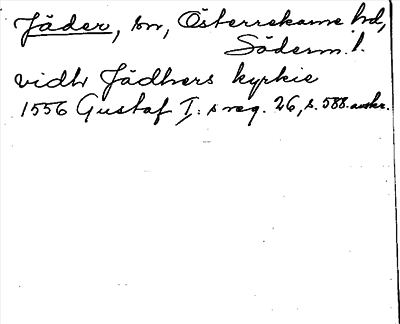 Jäder, sn, Österrekarne hd,
Söderm. l.
vidh Jädhers kyrkie
1556 Gustaf I:s reg. 26, s. 588. avskr.